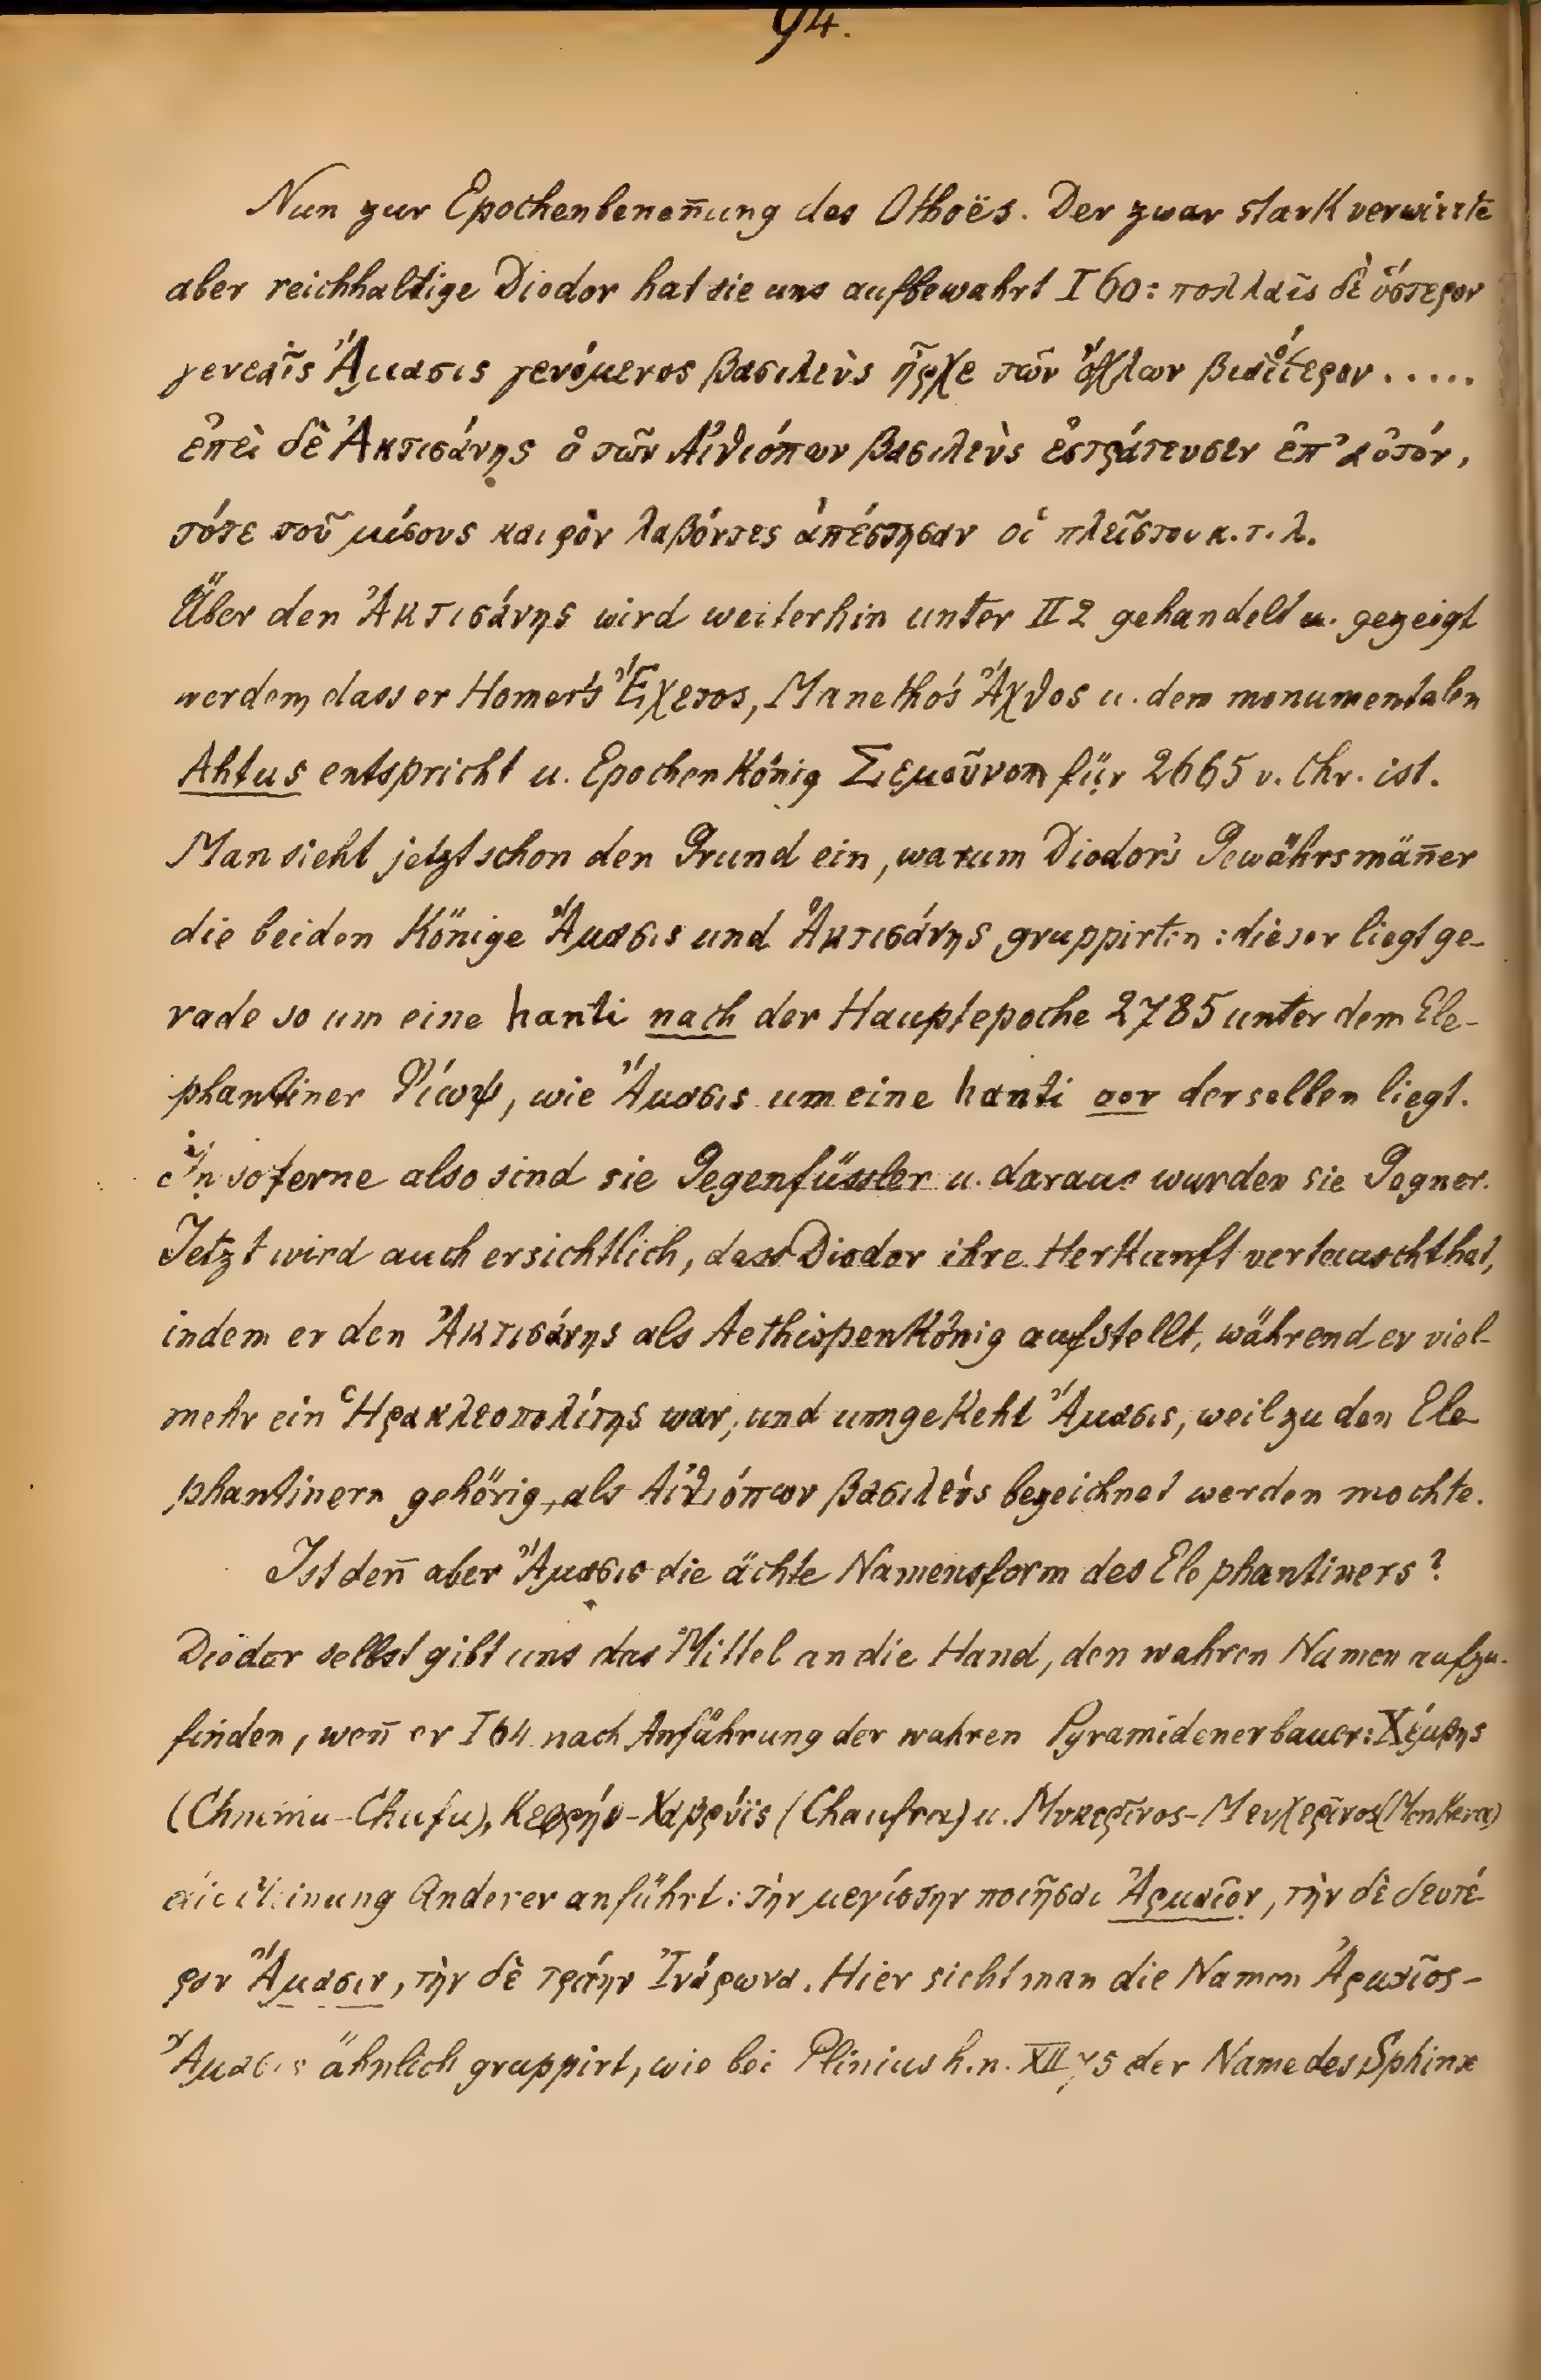 94.
Nun zur Epochenbeneñung des Othoës. Der zwar stark verwirrte
aber reichhaltige Diodor hat sie uns aufbewahrt I 60: πολλαῖς δὲ ὕστερον
γενεαῖς Ἄμασις γενόμενος βασιλεὺς ἦρχε τῶν ὄχλων βιαιότερον.....
ἐπεὶ δὲ Ἀκτισάνης ὁ τῶν Αἰθιόπων βασιλεὺς ἐστράτευσεν ἐπ' αὐτόν,
τότε τοῦ μίσους καιρὸν λαβόντες ἀπέστησαν οἱ πλεῖστοι κ.τ.λ.
Über den Ἀκτισάνης wird weiterhin unter II 2 gehandelt u. gezeigt
werden, dass er Homer's Ἔχετος, Manetho's Ἄχθος u. dem monumentalen
Ahtus entspricht u. Epochenkönig für 2665 v. Chr. ist.
Man sieht jetzt schon den Grund ein, warum Diodor's Gewährsmäñer
die beiden Könige Ἄμασις und Ἀκτισάνης gruppirten: dieser liegt ge-
rade so um eine hanti nach der Hauptepoche 2785 unter dem Ele-
phantiner Φίωψ, wie Ἄμασις um eine hanti vor derselben liegt.
In soferne also sind sie Gegenfüssler u. daraus wurden sie Gegner.
Jetzt wird auch ersichtlich, dass Diodor ihre Herkunft vertauscht hat,
indem er den Ἀκτισάνης als Aethiopenkönig aufstellt, während er viel-
mehr ein Ἡρακλεοπολίτης war, und umgekeht Ἄμασις, weil zu den Ele-
phantinern gehörig, als Αἰθιόπων βασιλεὺς bezeichnet werden mochte.
Ist deñ aber Ἄμασις die ächte Namensform des Elephantiners?
Diodor selbst gibt uns das Mittel an die Hand, den wahren Namen aufzu-
finden, weñ er I 64 nach Anführung der wahren Pyramidenerbauer: Χέμβης
(Chnumu-Chufu), Κεφρὴν-Χαβρύϊς (Chaufra) u. Μυκερῖνος-Μενχερῖνος (Menkera)
die Meinung Anderer anführt: τὴν μεγίστην ποιῆσαι Ἀρμαῖον, τὴν δὲ δευτέ-
ραν Ἄμασιν, τὴν δὲ τρίτην Ἰνάρωνα. Hier sieht man die Namen Ἀρμαῖος-
Ἄμασις ähnlich gruppirt, wie bei Plinius h.n. der Name des Sphinx